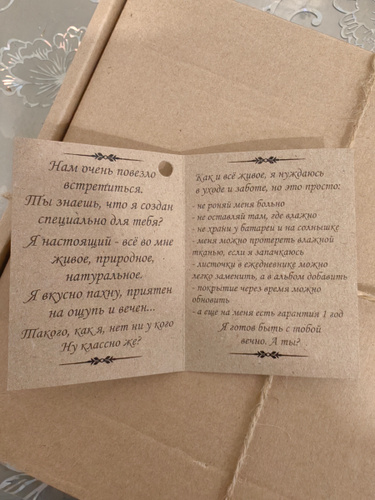 Нам очень повезло
встретиться.
Ты знаешь, что я создан
специально для тебя?
Я настоящий - всё во мне
живое, природное,
натуральное.
Я вкусно пахну, приятен
на ощупь и вечен...
Такого, как я, нет ни у кого
Ну классно же?
Как и всё живое, я нуждаюсь
в уходе и заботе, но это просто:
- не роняй меня больно
- не оставляй там, где влажно
- не храни у батареи и на солнышке
- меня можно протереть влажной
тканью, если я запачкаюсь
- листочки в ежедневнике можно
легко заменить, а в альбом добавить
- покрытие через время можно
обновить
- а еще на меня есть гарантия 1 год
Я готов быть с тобой
вечно. А ты?